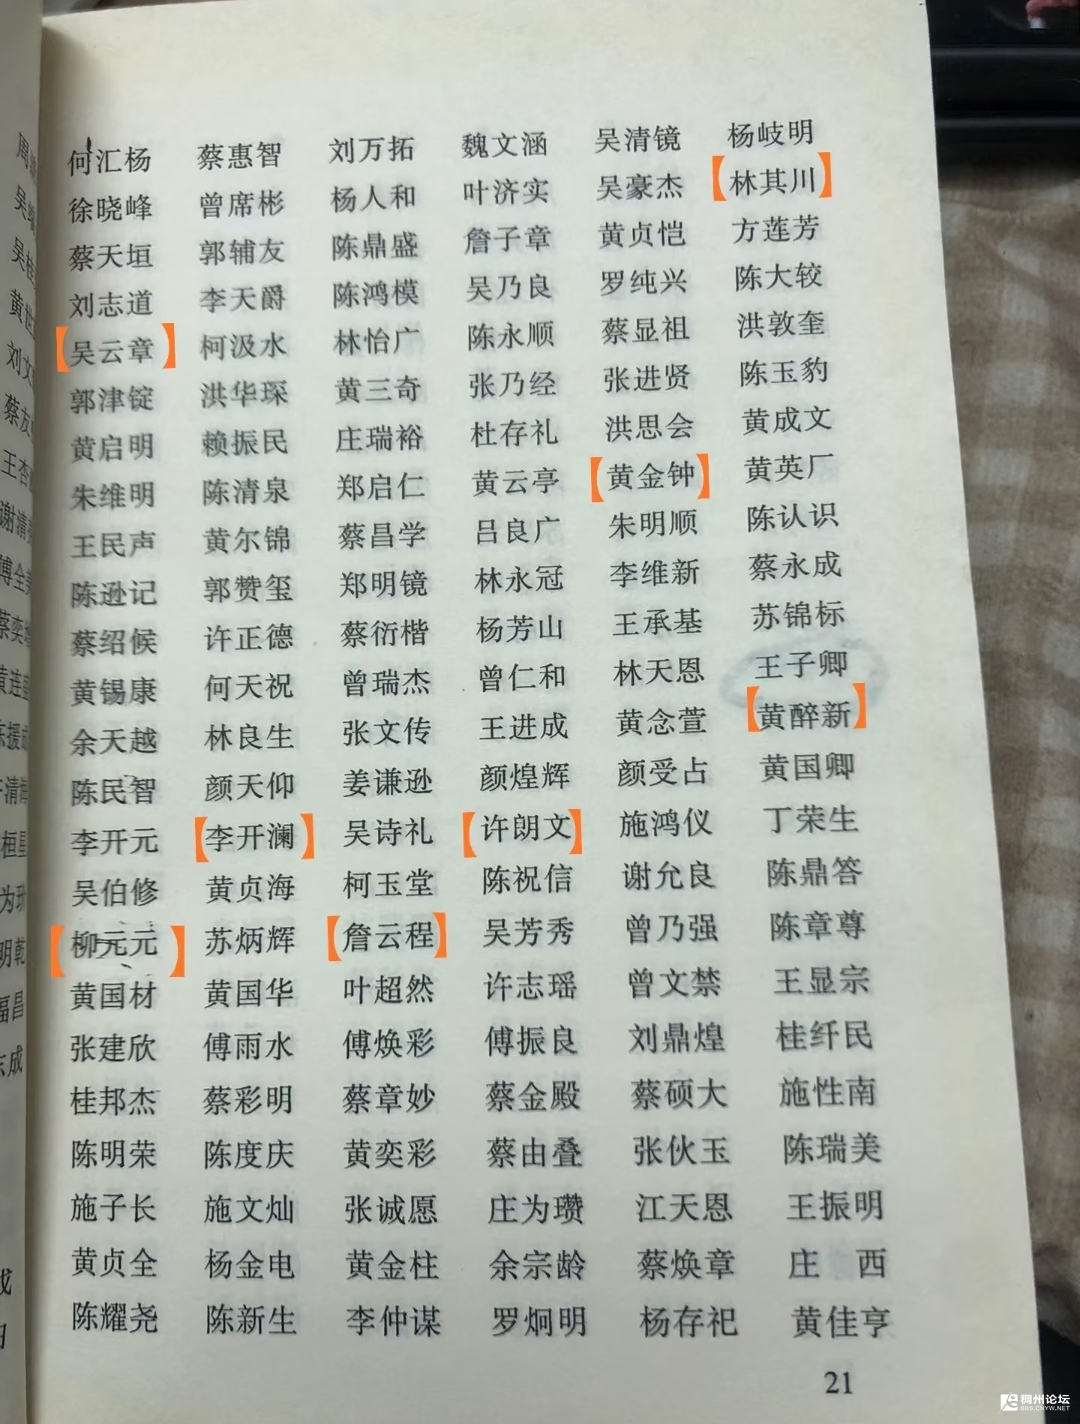 何汇杨 蔡惠智 刘万拓 魏文涵 吴清镜 杨岐明
徐晓峰 曾席彬 杨人和 叶济实 吴豪杰 【林其川】
蔡天垣 郭辅友 陈鼎盛 詹子章 黄贞恺 方莲芳
刘志道 李天爵 陈鸿模 吴乃良 罗纯兴 陈大较
【吴云章】 柯汲水 林怡广 陈永顺 蔡显祖 洪敦奎
郭津锭 洪华琛 黄三奇 张乃经 张进贤 陈玉豹
黄启明 赖振民 庄瑞裕 杜存礼 洪思会 黄成文
朱维明 陈清泉 郑启仁 黄云亭 【黄金钟】 黄英厂
王民声 黄尔锦 蔡昌学 吕良广 朱明顺 陈认识
陈逊记 郭赞玺 郑明镜 林永冠 李维新 蔡永成
蔡绍候 许正德 蔡衍楷 杨芳山 王承基 苏锦标
黄锡康 何天祝 曾瑞杰 曾仁和 林天恩 王子卿
余天越 林良生 张文传 王进成 黄念萱 【黄醉新】
陈民智 颜天仰 姜谦逊 颜煌辉 颜受占 黄国卿
李开元 【李开澜】 吴诗礼 【许朗文】 施鸿仪 丁荣生
吴伯修 黄贞海 柯玉堂 陈祝信 谢允良 陈鼎答
【柳元元】 苏炳辉 【詹云程】 吴芳秀 曾乃强 陈章尊
黄国材 黄国华 叶超然 许志瑶 曾文禁 王显宗
张建欣 傅雨水 傅焕彩 傅振良 刘鼎煌 桂纤民
桂邦杰 蔡彩明 蔡章妙 蔡金殿 蔡硕大 施性南
陈明荣 陈度庆 黄奕彩 蔡由叠 张伙玉 陈瑞美
施子长 施文灿 张诚愿 庄为瓒 江天恩 王振明
黄贞全 杨金电 黄金柱 余宗龄 蔡焕章 庄 西
陈耀尧 陈新生 李仲谋 罗炯明 杨存祀 黄佳亨
21
稠州论坛
BBS.CNYW.NET